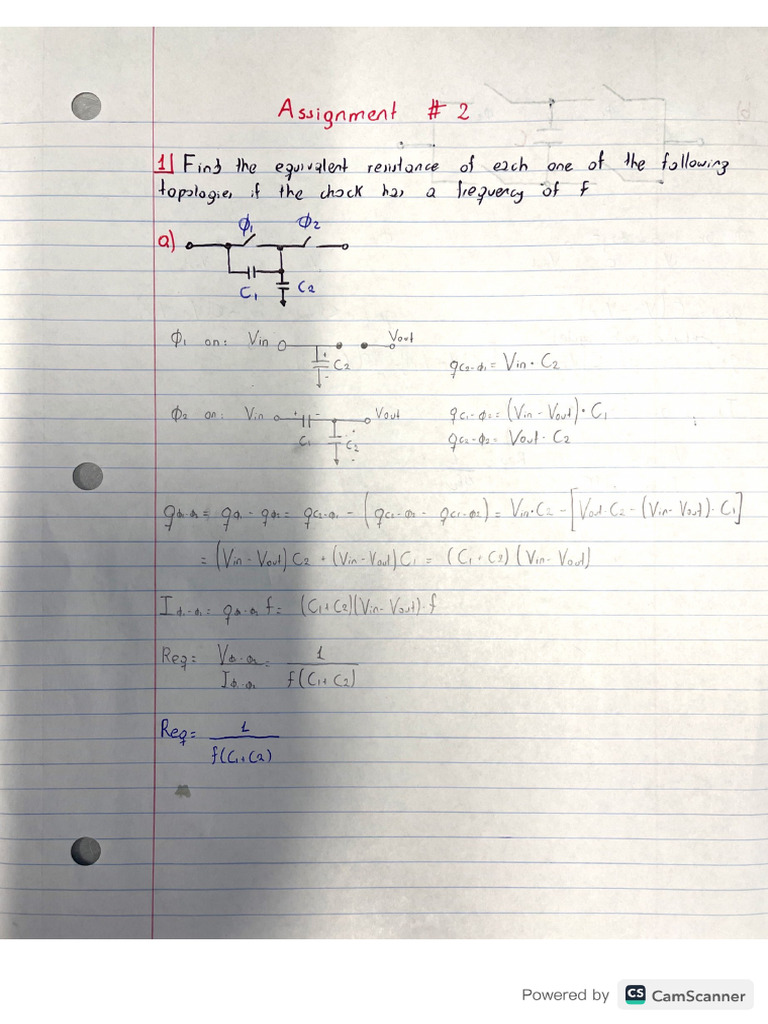 Assignment # 2
1) Find the equivalent resistance of each one of the following
topologies if the clock has a frequency of f
a) ϕ1 ϕ2
C1 C2
ϕ1 on: Vin Vout
C2 qC2-ϕ1 = Vin · C2
ϕ2 on: Vin Vout qC1-ϕ2 = (Vin - Vout) · C1
C1 C2 qC2-ϕ2 = Vout · C2
= qϕ1 - qϕ2 = qC2-ϕ1 - (qC2-ϕ2 - qC1-ϕ2) = Vin · C2 - [Vout · C2 - (Vin - Vout) · C1]
= (Vin - Vout) C2 + (Vin - Vout) C1 = (C1 + C2) (Vin - Vout)
f = (C1 + C2)(Vin - Vout) · f
Req = = 1
f(C1 + C2)
Req = 1
f(C1 + C2)
Powered by CS CamScanner